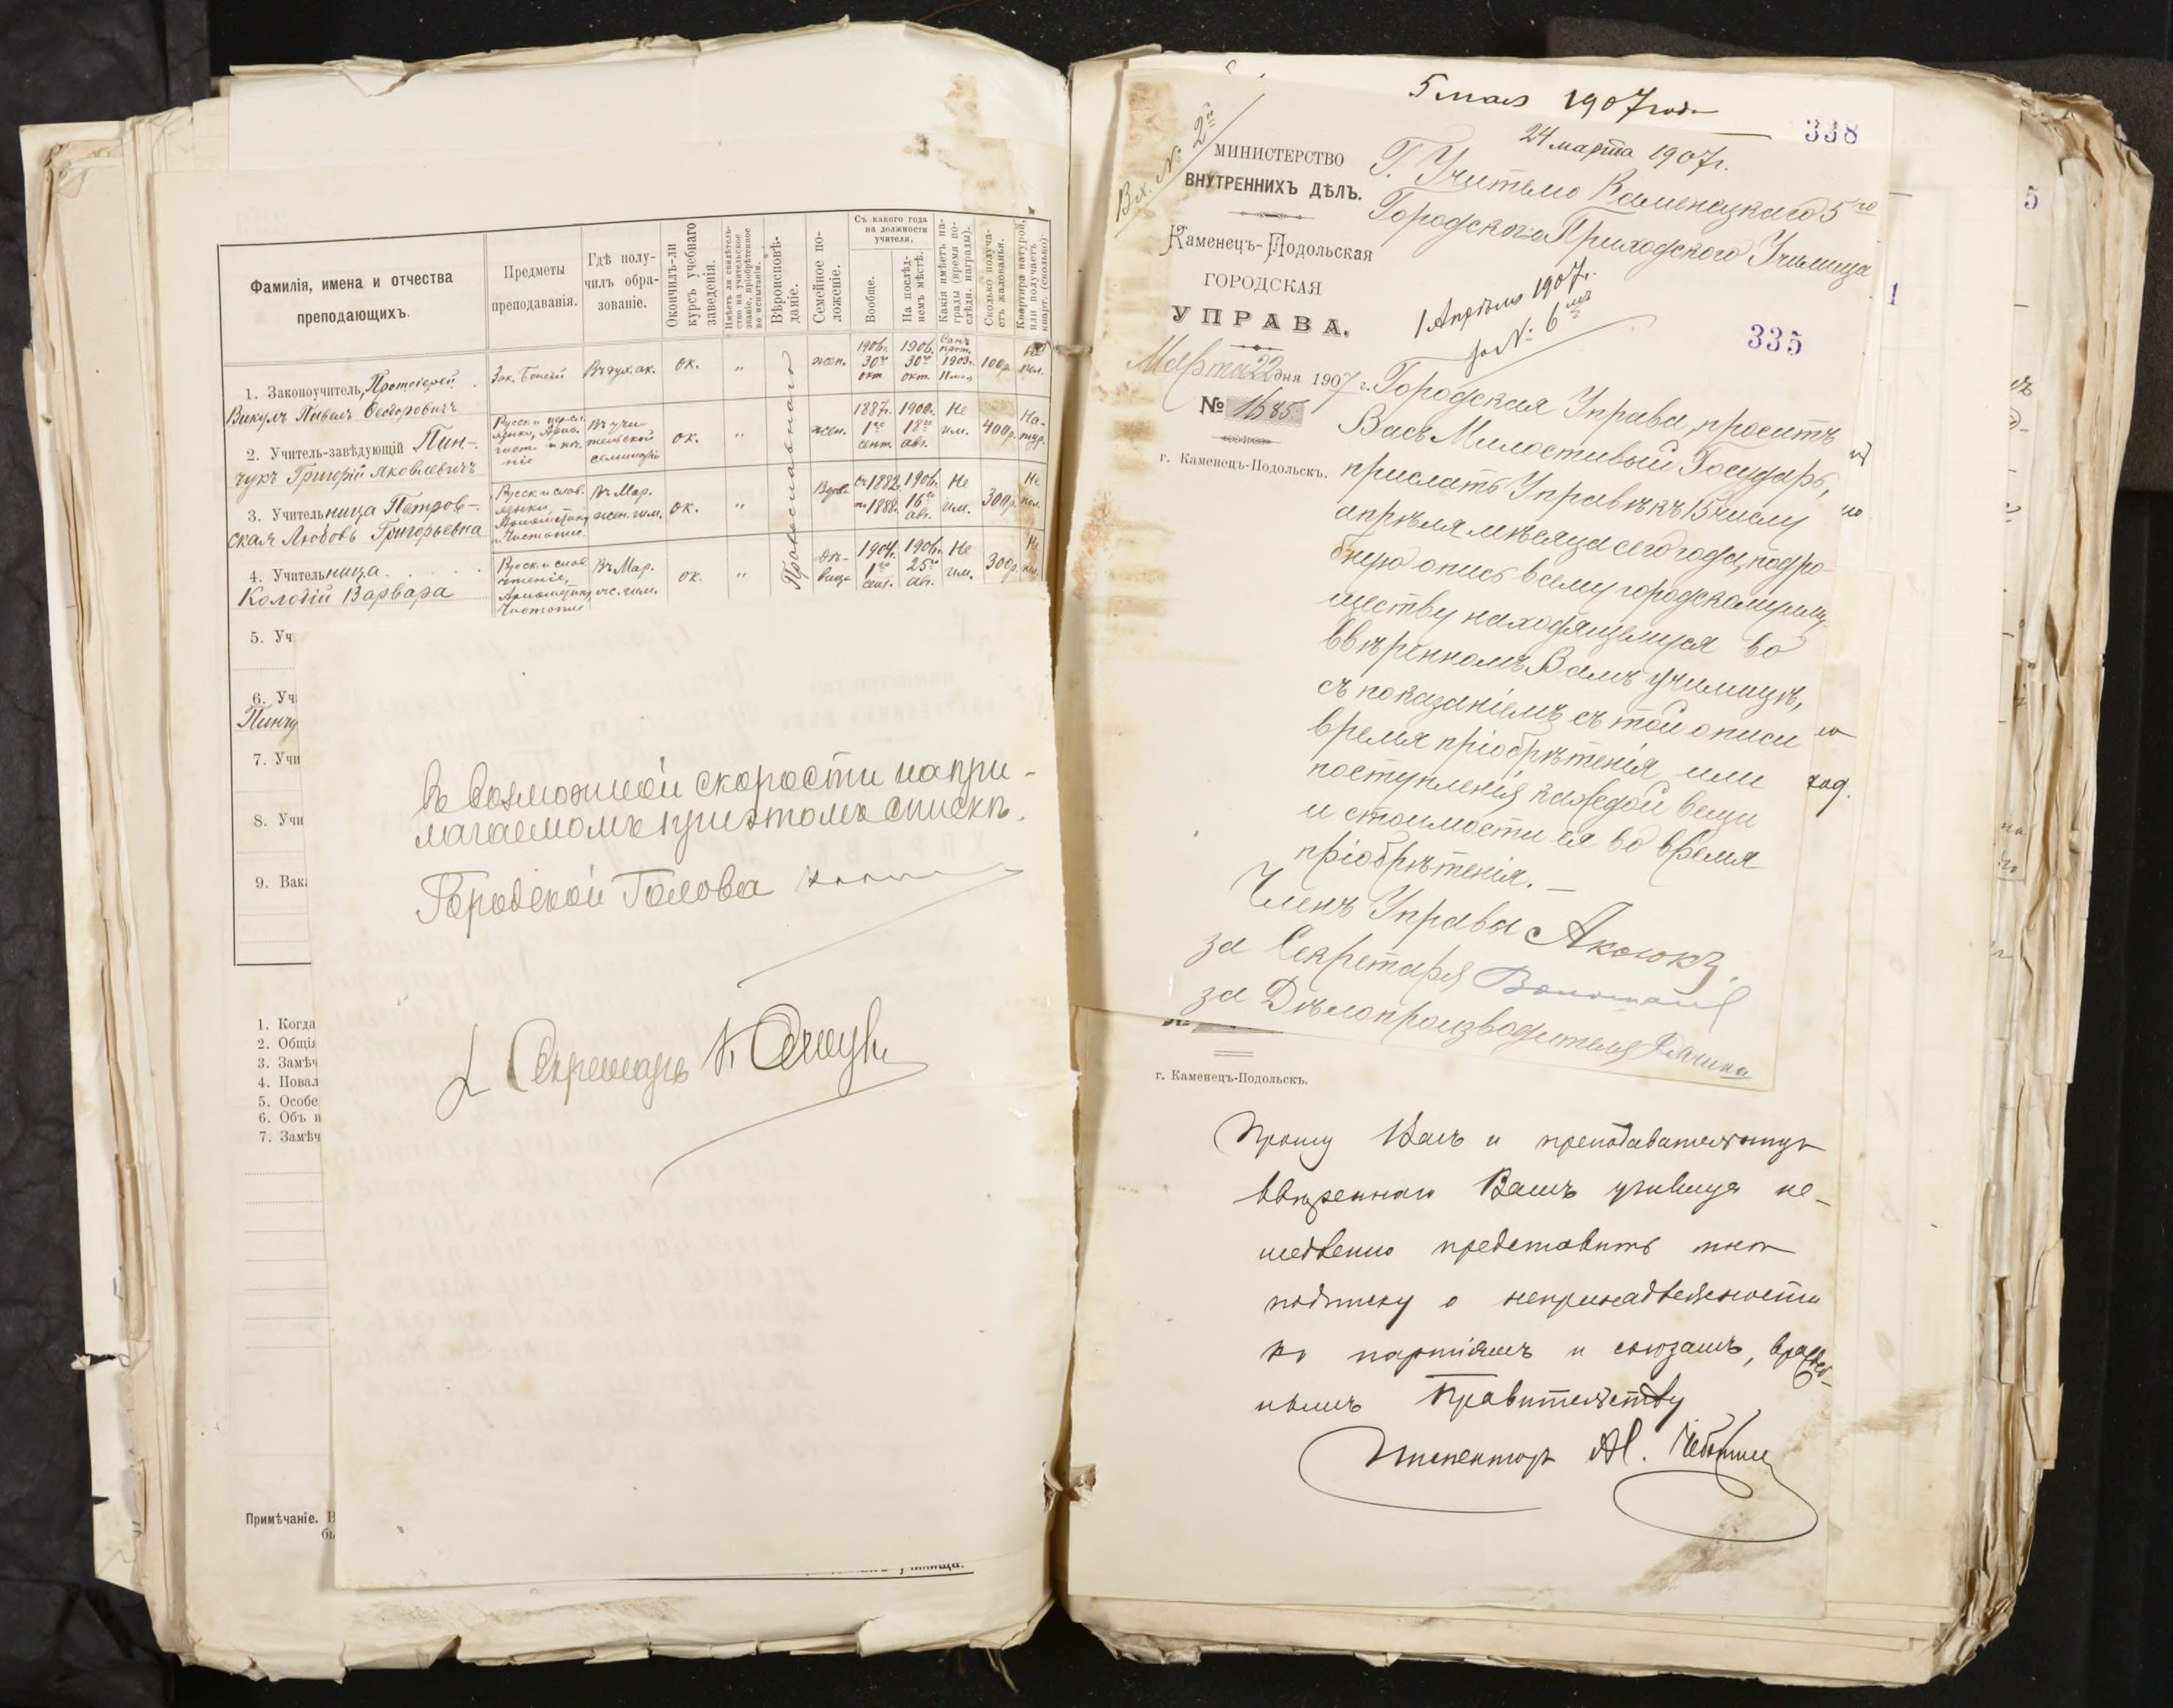 Фамилія, имена и отчества
преподающихъ.
Предметы
преподаванія.
Гдѣ полу-
чилъ обра-
зованіе.
Окончилъ-ли
курсъ учебнаго
заведенія.
Имѣетъ ли свидѣтель-
ство на учительское
званіе, пріобрѣтенное
по испытанію.
Вѣроисповѣ-
даніе.
Семейное по-
ложеніе.
Съ какого года
на должности
учителя.
Вообще.
На послѣд-
немъ мѣстѣ.
Какія имѣетъ на-
грады (время по-
слѣдн. награды).
Сколько получа-
етъ жалованья.
Квартира натурой,
или получаетъ
кварт. (сколько).
1. Законоучитель, Протоіерей
Викулъ Павелъ Ѳеодоровичъ
Зак. Божій
Въ дух. ак.
ок.
"
жен.
1906г.
30го
окт.
1906.
30го
окт.
100р.
2. Учитель-завѣдующій Пин-
чукъ Григорій Яковлевичъ
Въ учи
тельской
семинаріи
ок.
"
жен.
1887г.
1го
сент.
1900г.
18го
авг.
Не
им.
400р.
На-
тур.
3. Учительница Петров-
ская Любовь Григорьевна
Русск. и слав.
языки,
Въ Мар.
жен. гим.
ок.
"
Вдова
съ 1882
по 1888.
1906г.
16го
авг.
Не
им.
300р.
Не
пол.
4. Учительница
Колодій Варвара
Русск. и слав.
чтеніе,
Въ Мар.
ок.
"
дѣ-
вица
1904г.
1го
сент.
1906г.
25го
авг.
Не
им.
300р.
Не
Православнаго
5. Уч
6. Уч
Пинчу
7. Учи
8. Учи
9. Вак
1. Когда
2. Общія
3. Замѣч
4. Повал
5. Особе
6. Объ и
7. Замѣч
Примѣчаніе. В
бы
въ возможной скорости на при-
лагаемомъ при этомъ спискѣ.
Городской Голова
Секретарь
5 мая 1907 года
338
24 марта 1907г.
Вх. № 2го
МИНИСТЕРСТВО
ВНУТРЕННИХЪ ДѢЛЪ.
Каменецъ-Подольская
ГОРОДСКАЯ
УПРАВА.
Марта 22 дня 1907 г.
№ 1685
г. Каменецъ-Подольскъ.
Г. Учителю Каменецкаго 5го
Городского Приходского Училища
1 Апрѣля 1907г.
за № 6мъ
335
Городская Управа, проситъ
Васъ Милостивый Государь,
прислать Управѣ къ 15 числу
апрѣля мѣсяца сего года, подро-
бную опись всему городскому иму-
ществу находящемуся во
ввѣренномъ Вамъ училищѣ,
съ показаніемъ съ той описи
время пріобрѣтенія или
поступленія каждой вещи
и стоимости ея во время
пріобрѣтенія.—
Членъ Управы Аксюкъ.
за Секретаря
за Дѣлопроизводителя
г. Каменецъ-Подольскъ.
Прошу Васъ и преподавательницъ
ввѣреннаго Вамъ училища не-
медленно представить мнѣ
подписку о непринадлежности
къ партіямъ и союзамъ, враждеб-
нымъ Правительству
Инспекторъ
1
5